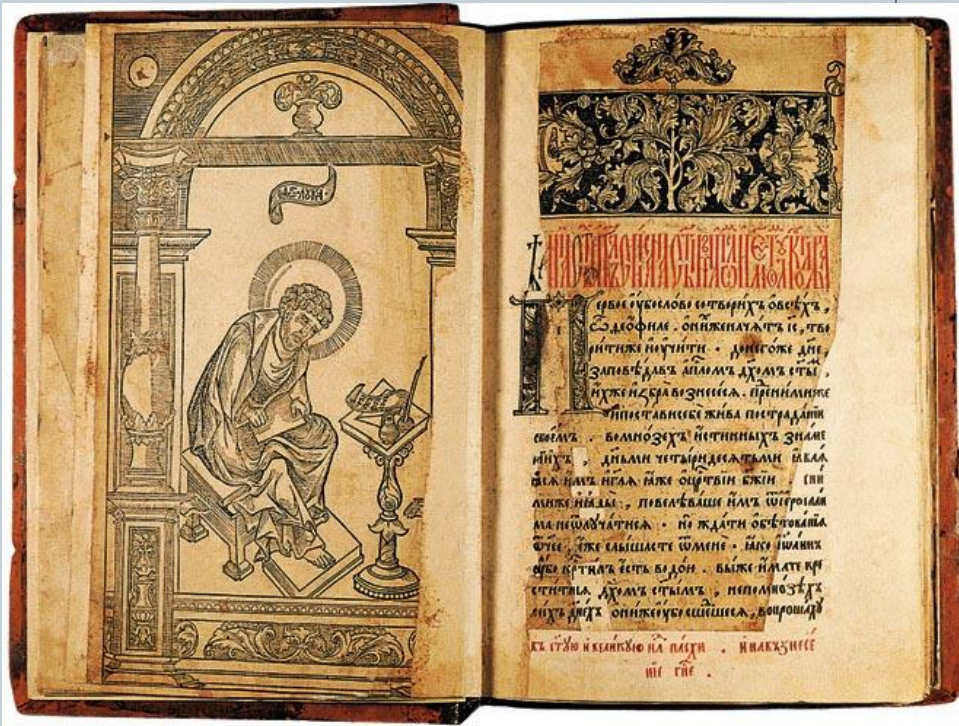 лꙋка
Первое ᲂу҆бо слово сотворихъ ѡ҆ всѣхъ ,
ѽ ѳеофиле . ѻ҆ ниже начѧтъ і҃с , тво
рити же и҆ ᲂу҆чити . до него же дн҃е ,
заповѣдавъ ап҃лом дх҃ом ст҃ы ,
и҆хже и҆збра вознесесѧ . пред ними же
и҆ постави себе жива по страданїи
своемъ . во мнозѣхъ и҆стинныхъ знаме
нїихъ , дньми четыридесѧтьми ꙗ҆влѧ
ꙗсѧ и҆мъ и҆ гл҃ѧ ꙗ҆же ѡ҆ црⷭ҇твїи бж҃їи . сни
ми же и҆ ꙗды , повелѣваше и҆мъ ѿ і҆ерꙋсали
ма не ѿлꙋчатисѧ . но ждати ѡ҆бѣтованїѧ
ѿч҃ее , е҆же слышасте ѿ мене . ꙗ҆ко і҆ѡ҆аннъ
ᲂу҆бо крⷭ҇тилъ є҆сть водою . вы же и҆мате кре
ститисѧ дх҃омъ ст҃ымъ , не по мнозѣхъ
сихъ дн҃ехъ ѻ҆ни же ᲂу҆бо сшедшесѧ , вопрошахꙋ
въ ст҃ꙋю и҆ великꙋю нⷣлю пасхи . и҆ на възнесе
нїе гн҃е .